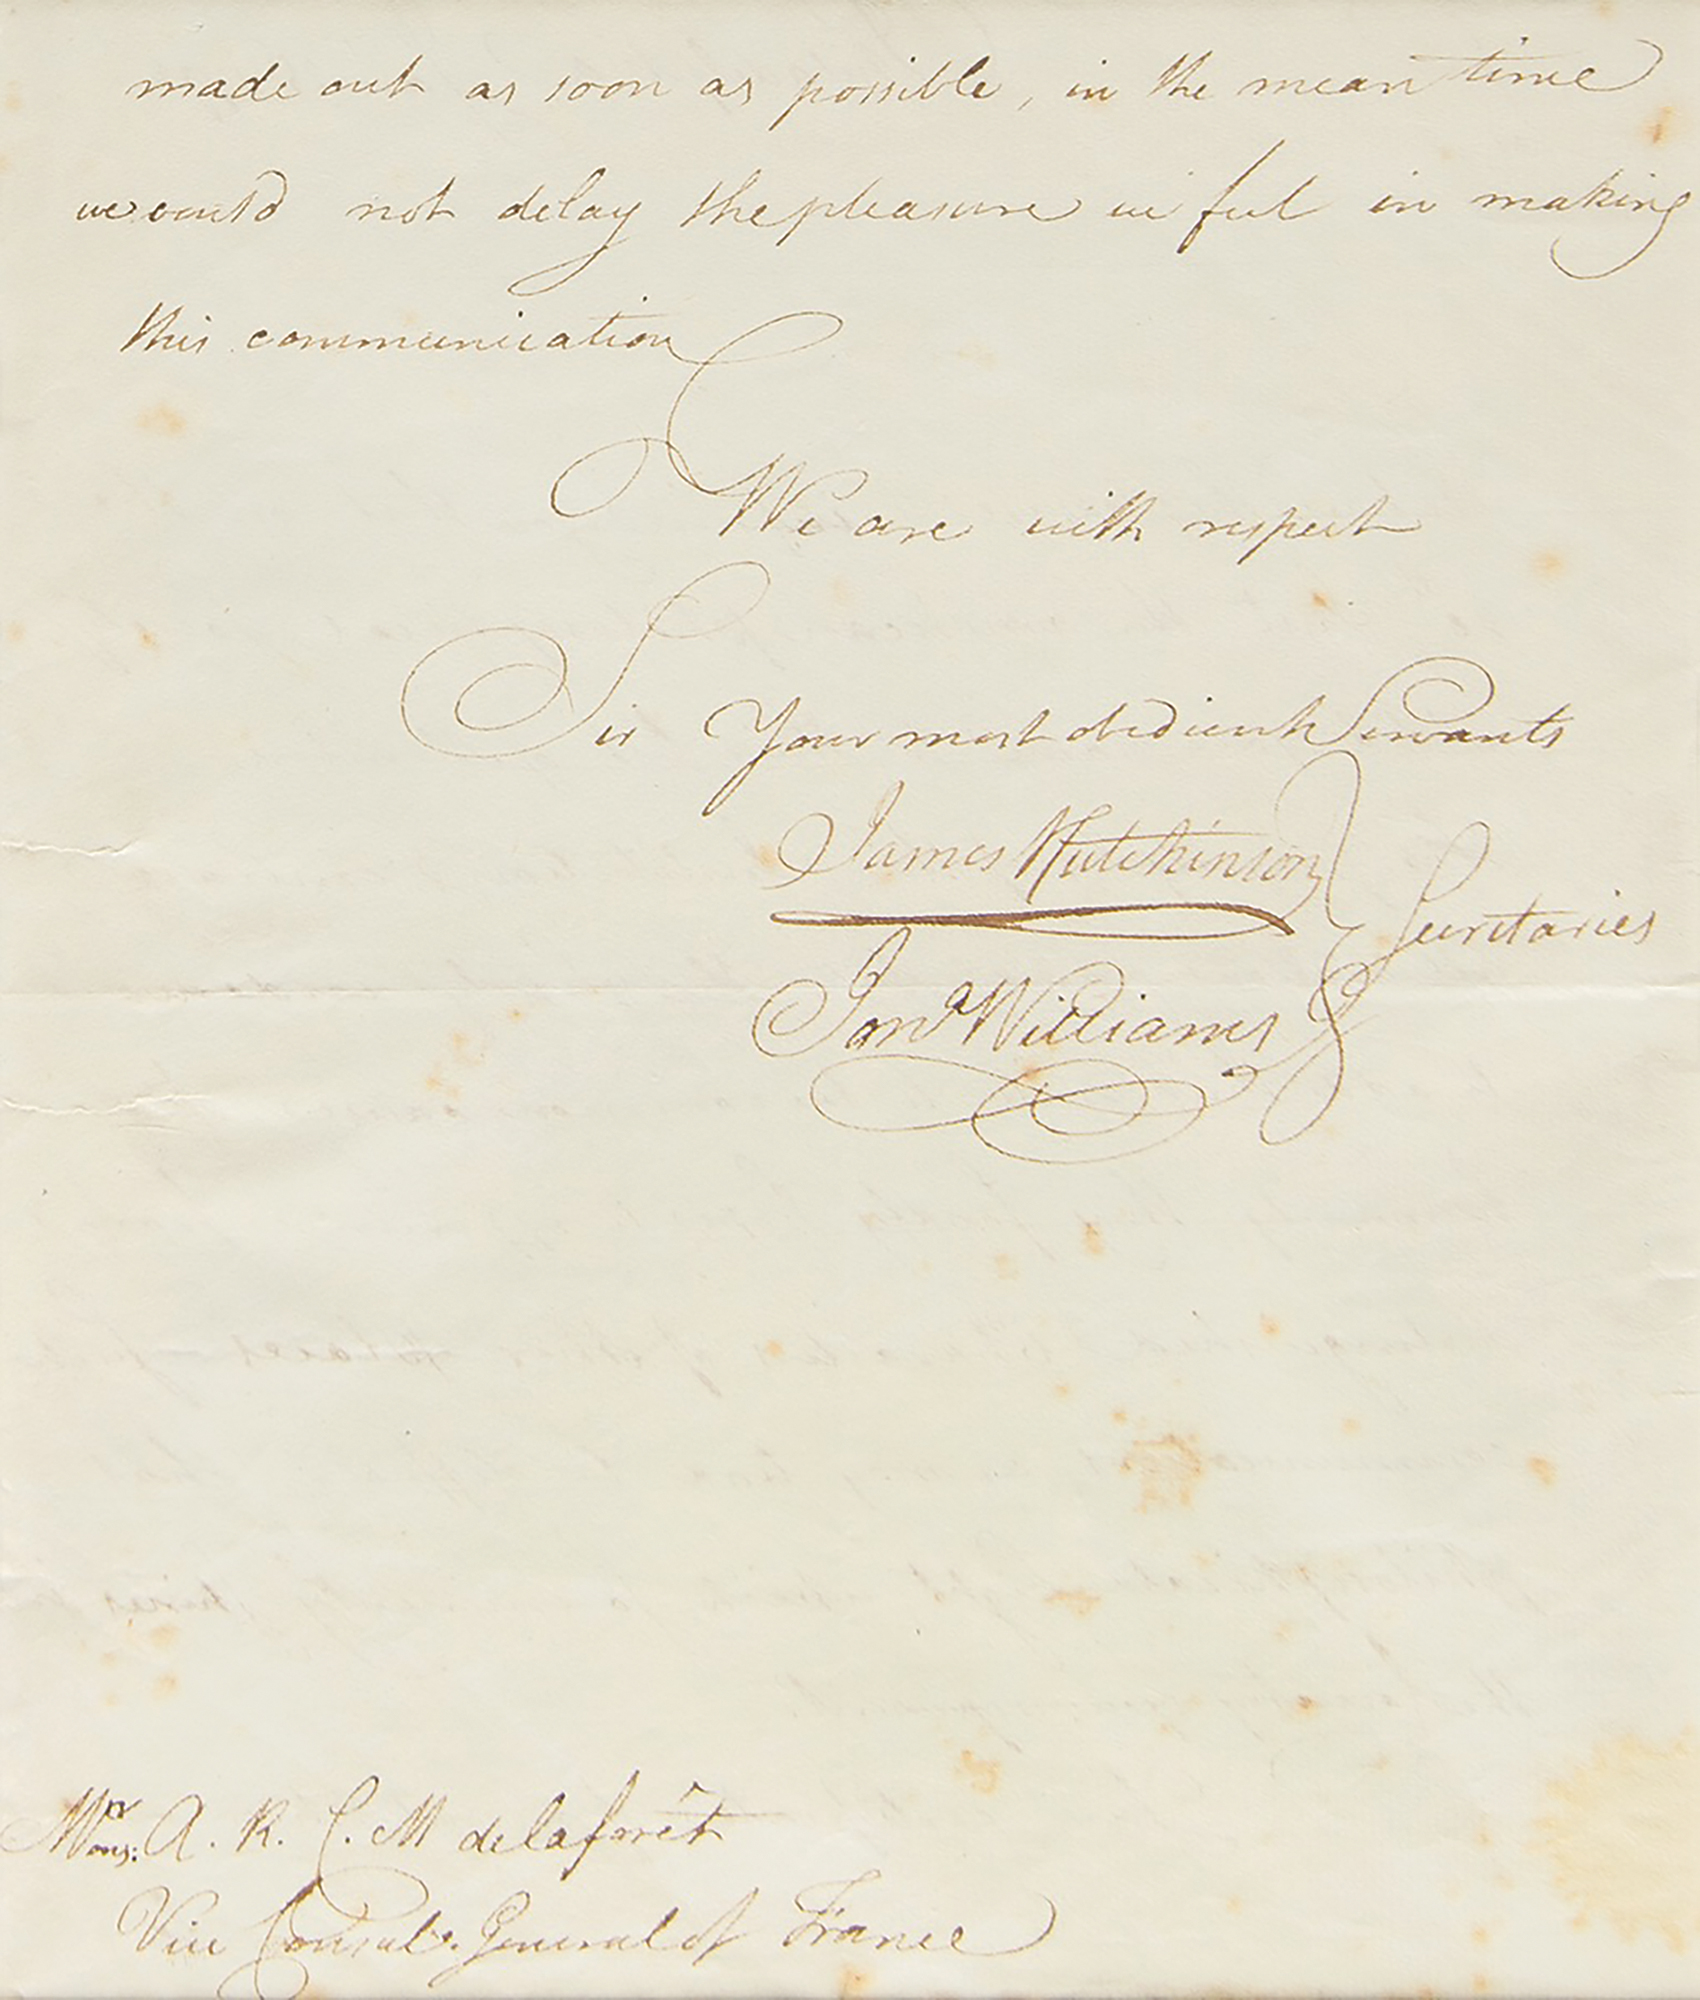 made out as soon as possible, in the mean time
we would not delay the pleasure we feel in making
this communication
We are with respect
Sir Your most obedient Servants
James Hutchinson
Secretaries
Jonᵃ Williams
Monsʳ: A. R. C. M delaforêt
Vice Consul. General of France